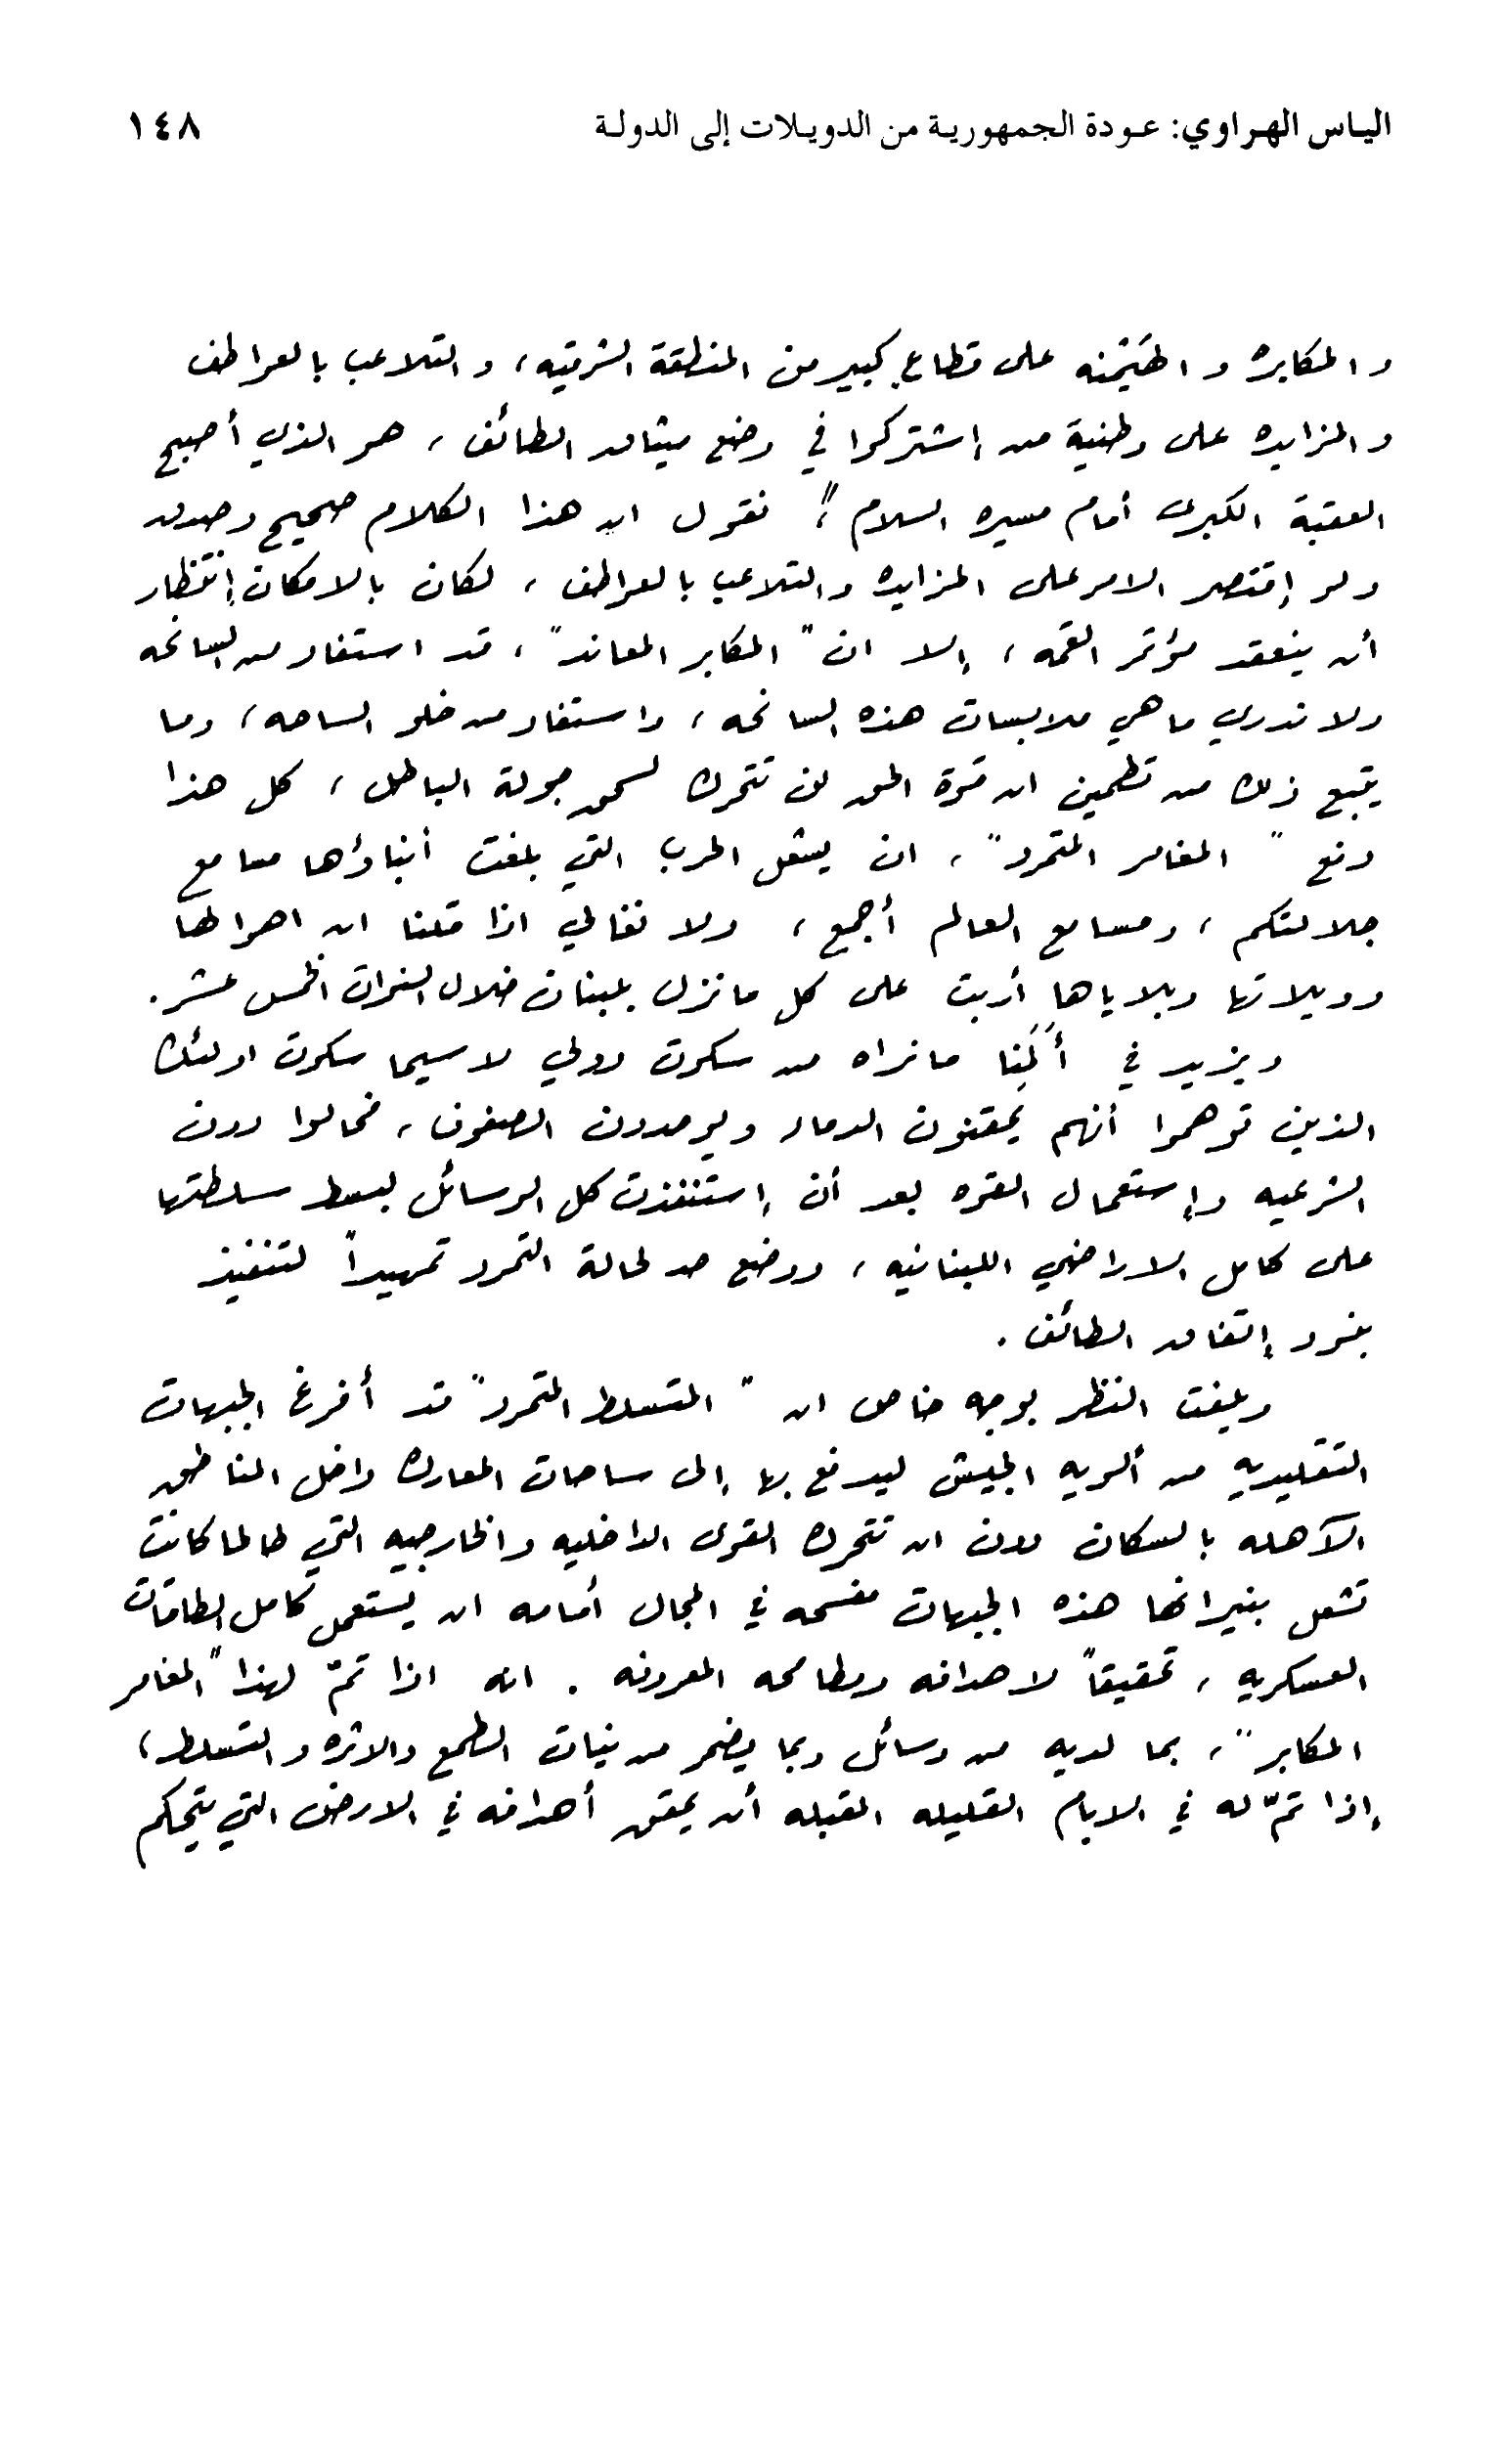 الياس الهراوي: عودة الجمهورية من الدويلات إلى الدولة ١٤٨
والمكابره والهَيْمنه على قطاعٍ كبير من المنطقة الشرقيه، والتلاعب بالعواطف
والمزايده على وطنية من إشتركوا في وضع ميثاق الطائف، هو الذي أصبح
العقبة الكبرى أمام مسيره السلام"، نقول ان هذا الكلام صحيح وصدق
ولو إقتصر الامر على المزايده والتلاعب بالعواطف، لكان بالامكان إنتظار
أن ينعقد مؤتمر القمه، إلا ان "المكابر المعاند"، قد استفاد من السانحه
ولا ندري ما هي ملابسات هذه السانحه، واستفاد من خلو الساحه، وما
يتبع ذلك من تطمين ان قوة الحق لن تتحرك لسحق جولة الباطل، كل هذا
دفع "المغامر المتمرد"، ان يشعل الحرب التي بلغت أنباؤها مسامع
جلالتكم، ومسامع العالم أجمع، ولا نغالي اذا قلنا ان اهوالها
وويلاتها وبلاياها أربت على كل ما نزل بلبنان خلال السنوات الخمس عشر.
ويزيد في أَلَمِنا ما نراه من سكوت دولي لا سيما سكوت اولئك
الذين توهموا أنهم يحقنون الدماء ويوحدون الصفوف، فحالوا دون
الشرعيه وإستعمال القوه بعد أن إستنفذت كل الوسائل لبسط سلطتها
على كامل الاراضي اللبنانيه، ووضع حد لحالة التمرد تمهيداً لتنفيذ
بنود إتفاق الطائف.
ويلفت النظر بوجه خاص ان "المتسلط المتمرد" قد أفرغ الجبهات
التقليديه من ألويه الجيش ليدفع بها إلى ساحات المعارك داخل المناطق
الآهله بالسكان دون ان تتحرك القوى الداخليه والخارجيه التي طالما كانت
تشعل بنيرانها هذه الجبهات مفسحه في المجال أمامه ان يستعمل كامل الطاقات
العسكريه، تحقيقاً لاهدافه ومطامحه المعروفه. انه اذا تمّ لهذا "المغامر
المكابر"، بما لديه من وسائل وبما يضمر من نيات الطمع والاثره والتسلط،
إذا تمّ له في الايام القليله المقبله أن يحقق أهدافه في الارض التي يتحكم